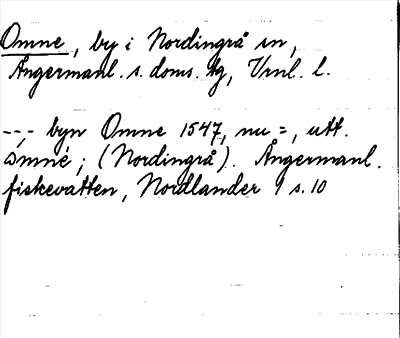 Omne, by i Nordingrå sn,
Ångermanl. s. doms. tg, Vrnl. l.
-,- byn Omne 1547, nu =, utt.
ɷ́mnè; (Nordingrå). Ångermanl.
fiskevatten, Nordlander 1 s. 10